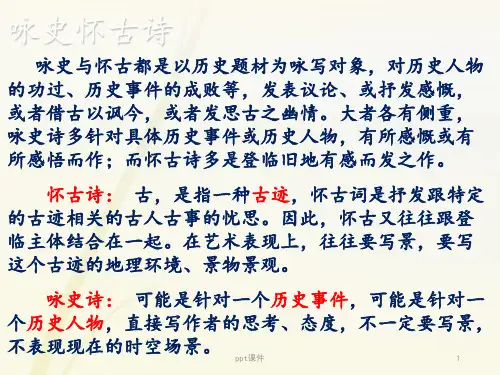 咏史怀古诗
咏史与怀古都是以历史题材为咏写对象，对历史人物
的功过、历史事件的成败等，发表议论、或抒发感慨，
或者借古以讽今，或者发思古之幽情。大者各有侧重，
咏史诗多针对具体历史事件或历史人物，有所感慨或有
所感悟而作；而怀古诗多是登临旧地有感而发之作。
怀古诗： 古，是指一种古迹，怀古词是抒发跟特定
的古迹相关的古人古事的忧思。因此，怀古又往往跟登
临主体结合在一起。在艺术表现上，往往要写景，要写
这个古迹的地理环境、景物景观。
咏史诗： 可能是针对一个历史事件，可能是针对一
个历史人物，直接写作者的思考、态度，不一定要写景，
不表现现在的时空场景。
ppt课件
1